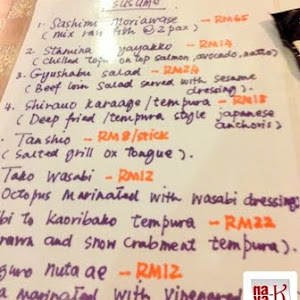 Susume
1. Sashimi Moriawase - RM65
( mix raw fish @ 2 pax )
2. Stamina yayakko - RM14
( chilled tofu on top salmon, avocado, natto )
3. Gyushabu salad - RM24
( Beef loin Salad served with sesame
dressing ).
4. Shirauo karaage / tempura - RM18
( Deep fried / tempura style japanese
anchoris )
Tanshio - RM8/stick
( Salted grill ox tongue ).
Tako Wasabi - RM12
Octopus Marinated with wasabi dressing
bi to Kaoribako tempura - RM22
rawn and snow crabment tempura ).
guro nuta ae - RM12
a marinated with vinegared